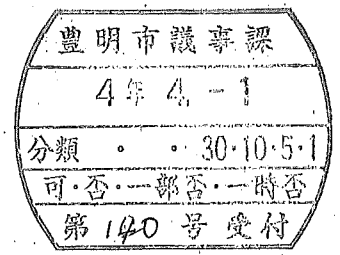 豊明市議事課
4年4.-1
分類 ・ ・ 30・10・5・1
可・否・一部否・一時否
第 190 号受付